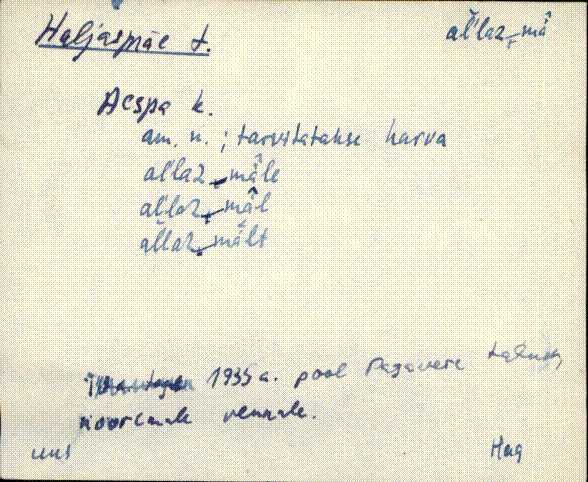 Haljasmäe t. al'laz_mä̂
Aespa k.
am. n.; tarvitatakse harva
al'laz_mä̂le
al'laz_mä̂l
al'laz_mä̂lt
1935 a. pool Pagavere talust
nooremale vennale.
uus Hag